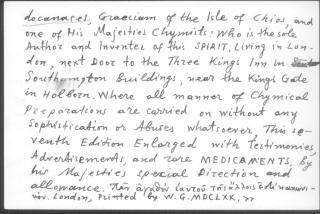 docanaces, Graecium of the Isle of Chios, and
one of His Majesties Chymists: Who is the sole
Author and Inventer of this SPIRIT, Living in Lon-
don, next Door to the Three Kings Inn in
Southampton buildings, near the Kings Gate
in Holborn. Where all manner of Chymical
Preparations are carried on without any
Sophistication or Abuses whatsoever. This se-
venth Edition Enlarged with Testimonies,
Advertisements, and rare MEDICAMENTS, by
his Majesties special Direction and
allowance. Πᾶν ἀγαθὸν ἑαυτοῦ
London, Printed by W. G. MDCLXX. >>